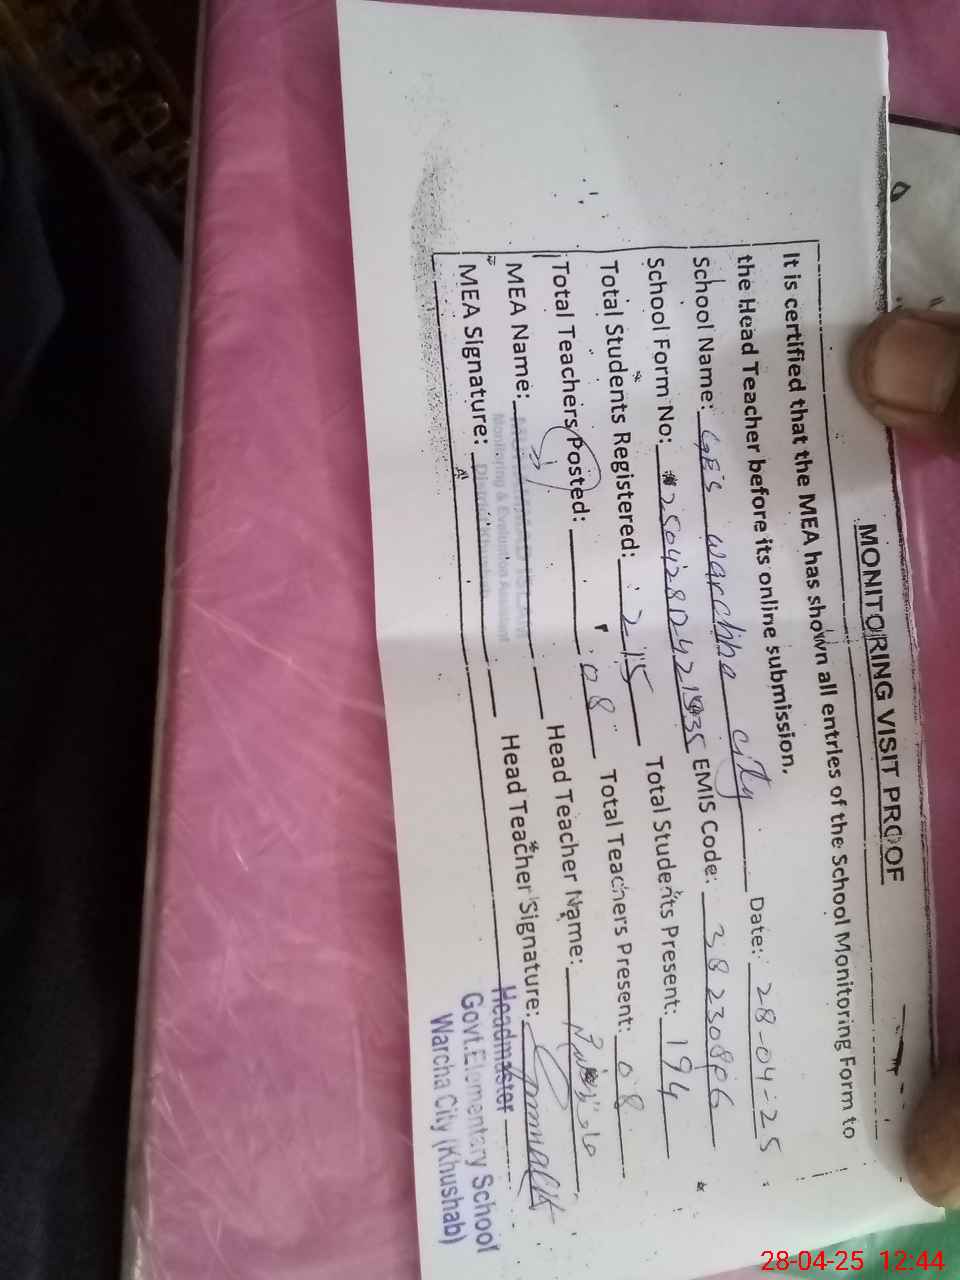 MONITORING VISIT PROOF
It is certified that the MEA has shown all entries of the School Monitoring Form to
the Head Teacher before its online submission.
School Name: GES warchha city Date: 28-04-25
School Form No: EMIS Code: 38230806
Total Students Registered: 215 Total Students Present: 194
Total Teachers Posted: 08 Total Teachers Present: 08
MEA Name: Head Teacher Name:
Monitoring & Evaluation Assistant
MEA Signature: Head Teacher Signature:
District Khushab
Headmaster
Govt.Elementary School
Warcha City (Khushab)
28-04-25 12:44